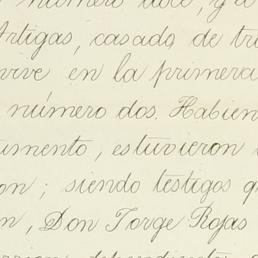 número doce, y o
Artigas, casada, de tri
vive en la primera
número dos. Habien
umento, estuvieron
on; siendo testigos q
n, Don Jorge Rojas